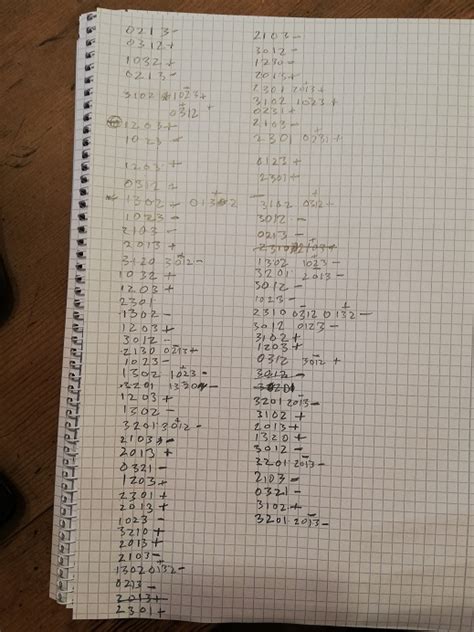 0213-
0312+
1032+
0213-
3102 1023+
0312
1203+
1023-
1203+
0312
1302- 0132
1023-
2103-
2013+
3120 3012-
1032+
1203+
2301
1302-
1203+
3012-
2130 0213-
1023-
1302 1023-
3201
1203+
1302-
3201 3012-
2103-
2013+
0321-
1203+
2301+
2013+
1023-
3210+
2013+
2103-
1302 0132-
0213-
2013+
2301+
2103-
3012-
1230-
2013+
2301 2013+
3102 1023+
0231+
2103-
2301 0231+
0123+
2301+
3102 0312+
3012-
0213-
1302 1023-
3201 2013-
3012-
1023-
2310 0312 0132-
3012 0123-
3102+
1203+
0312 3012+
3012-
3201 2013-
3102+
2013+
1320+
3012-
3201 2013-
2103-
0321-
3102+
3201 2013-